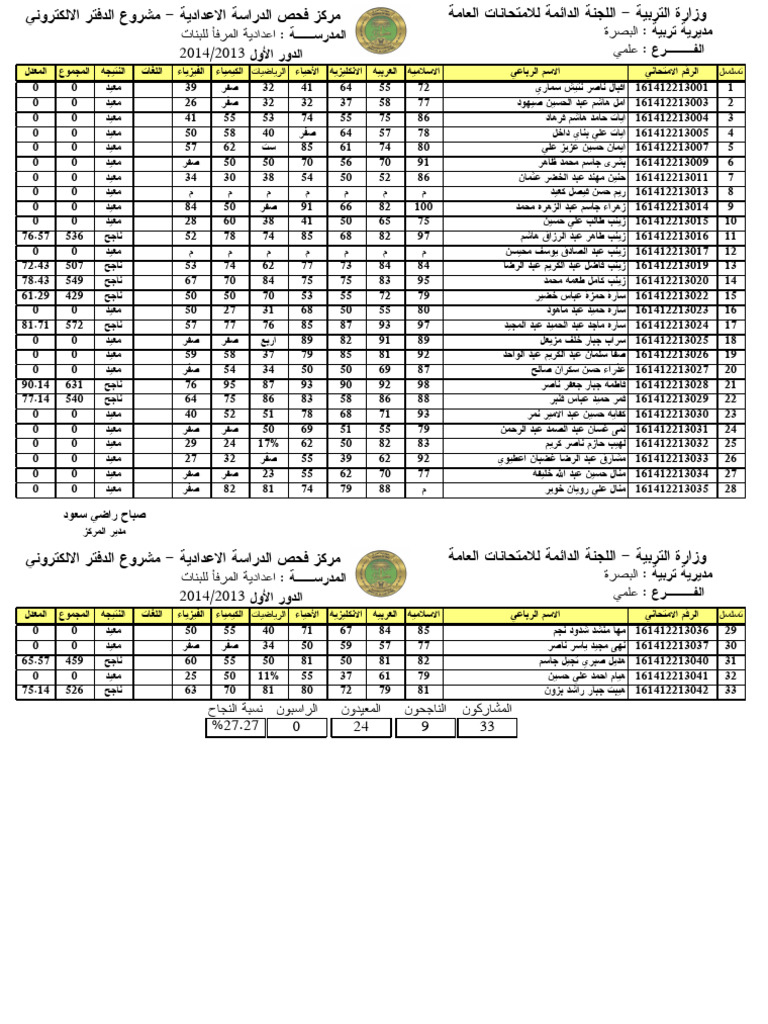 وزارة التربية – اللجنة الدائمة للامتحانات العامة
مركز فحص الدراسة الاعدادية – مشروع الدفتر الالكتروني
مديرية تربية : البصرة
المدرســـــة : اعدادية المرفأ للبنات
الفـــــرع : علمي
الدور الأول 2014/2013
تسلسل الرقم الامتحاني الاسم الرباعي الاسلامية العربية الانكليزية الأحياء الرياضيات الكيمياء الفيزياء اللغات النتيجة المجموع المعدل
1 161412213001 اقبال ناصر نتيش سماري 72 55 64 41 32 صفر 39 معيد 0 0
2 161412213003 امل هاشم عبد الحسين صيهود 77 58 37 32 32 صفر 26 معيد 0 0
3 161412213004 ايات حامد هاشم فرهاد 86 75 55 74 53 55 41 معيد 0 0
4 161412213005 ايات علي بناي داخل 78 57 64 صفر 40 58 50 معيد 0 0
5 161412213007 ايمان حسين عزيز علي 80 74 61 85 ست 62 57 معيد 0 0
6 161412213009 بشرى جاسم محمد طاهر 91 70 56 70 50 50 صفر معيد 0 0
7 161412213011 حنين مهند عبد الخضر عثمان 86 52 50 54 38 30 34 معيد 0 0
8 161412213013 ريم حسن فيصل كعيد م م م م م م م معيد 0 0
9 161412213014 زهراء جاسم عبد الزهره محمد 100 82 66 91 صفر 50 84 معيد 0 0
10 161412213015 زينب طالب علي حسين 75 65 50 41 38 60 28 معيد 0 0
11 161412213016 زينب طاهر عبد الرزاق هاشم 97 82 68 85 74 78 52 ناجح 536 76-57
12 161412213017 زينب عبد الصادق يوسف محيسن م م م م م م م معيد 0 0
13 161412213019 زينب فاضل عبد الكريم عبد الرضا 84 84 73 77 62 74 53 ناجح 507 72-43
14 161412213020 زينب كامل طعمه محمد 95 83 75 75 84 70 67 ناجح 549 78-43
15 161412213022 ساره حمزه عباس خضير 79 72 55 53 70 50 50 ناجح 429 61-29
16 161412213023 ساره حميد عبد ماهود 80 55 50 68 31 27 50 معيد 0 0
17 161412213024 ساره ماجد عبد الحميد عبد المجيد 97 93 87 85 76 77 57 ناجح 572 81-71
18 161412213025 سراب جبار خلف مزبعل 89 91 82 89 اربع صفر صفر معيد 0 0
19 161412213026 صفا سلمان عبد الكريم عبد الواحد 92 81 85 79 37 58 59 معيد 0 0
20 161412213027 عذراء حسن سكران صالح 87 69 50 50 34 54 صفر معيد 0 0
21 161412213028 فاطمه جبار جعفر ناصر 98 92 90 93 87 95 76 ناجح 631 90-14
22 161412213029 قمر حميد عباس قنبر 88 86 58 83 86 75 64 ناجح 540 77-14
23 161412213030 كفايه حسين عبد الامير نمر 93 71 68 78 51 52 40 معيد 0 0
24 161412213031 لمى غسان عبد الصمد عبد الرحمن 79 55 51 69 50 صفر صفر معيد 0 0
25 161412213032 لهيب حازم ناصر كريم 83 82 50 62 17% 24 29 معيد 0 0
26 161412213033 مشارق عبد الرضا غضبان اعطيوي 92 62 39 55 صفر 32 27 معيد 0 0
27 161412213034 منال حسين عبد الله خليفه 77 70 62 55 23 صفر صفر معيد 0 0
28 161412213035 منال علي رويان خوير م 88 79 74 81 82 صفر معيد 0 0
صباح راضي سعود
مدير المركز
وزارة التربية – اللجنة الدائمة للامتحانات العامة
مركز فحص الدراسة الاعدادية – مشروع الدفتر الالكتروني
مديرية تربية : البصرة
المدرســـــة : اعدادية المرفأ للبنات
الفـــــرع : علمي
الدور الأول 2014/2013
تسلسل الرقم الامتحاني الاسم الرباعي الاسلامية العربية الانكليزية الأحياء الرياضيات الكيمياء الفيزياء اللغات النتيجة المجموع المعدل
29 161412213036 مها منشد شدود نجم 85 84 67 71 40 55 50 معيد 0 0
30 161412213037 نهى مجيد ياسر ناصر 77 57 59 50 34 صفر صفر معيد 0 0
31 161412213040 هديل صبري نجيل جاسم 82 81 50 81 50 55 60 ناجح 459 65-57
32 161412213041 هيام احمد علي حسين 79 61 37 55 11% 50 25 معيد 0 0
33 161412213042 هيبت جبار راشد بزون 81 79 72 80 81 70 63 ناجح 526 75-14
المشاركون الناجحون المعيدون الراسبون نسبة النجاح
33 9 24 0 %27.27